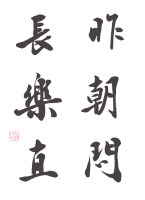 昨朝問
長樂直